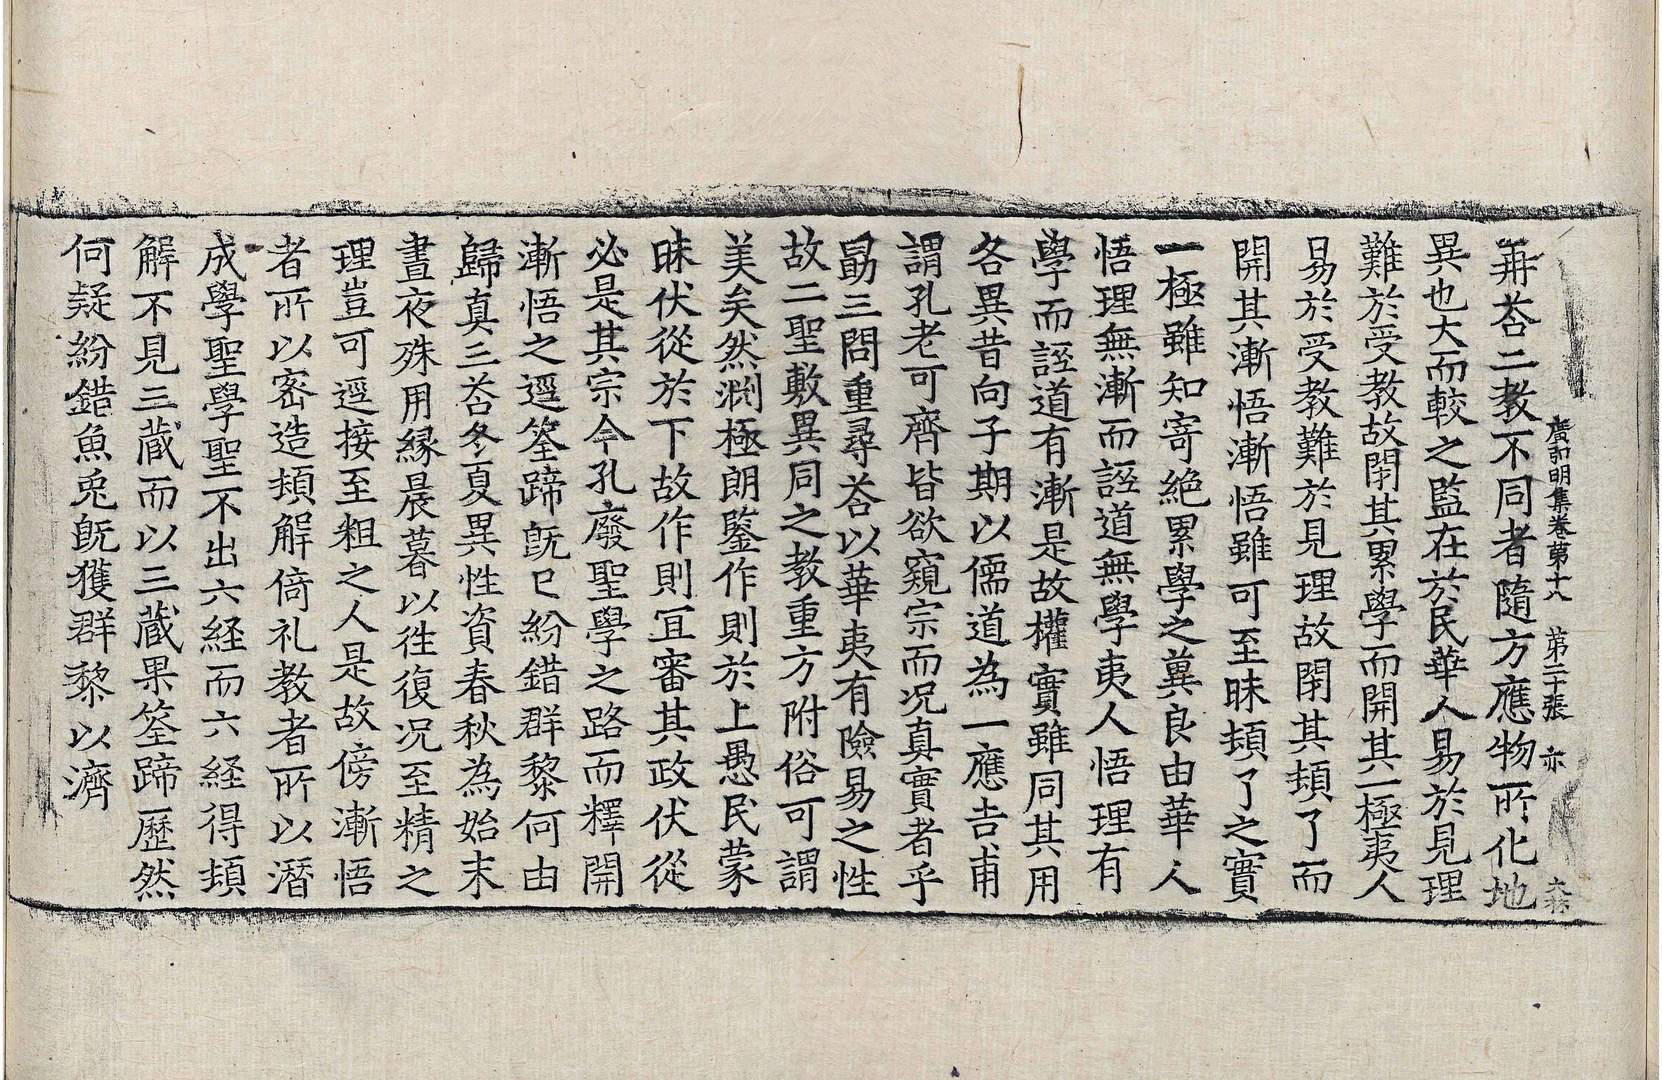 廣弘明集卷苐十八 苐二十張 亦
再荅二教不同者隨方應物所化地
異也大而較之監在於民華人易於見理
難於受教故閉其累學而開其一極夷人
易於受教難於見理故閉其頓了而
開其漸悟漸悟雖可至昧頓了之實
一極雖知寄絶累學之冀良由華人
悟理無漸而誣道無學夷人悟理有
學而誣道有漸是故權實雖同其用
各異昔向子期以儒道為一應吉甫
謂孔老可齊皆欲窺宗而况真實者乎
勗三問重尋荅以華夷有險易之性
故二聖敷異同之教重方附俗可謂
美矣然渕極朗鑒作則於上愚民蒙
昧伏從於下故作則冝審其政伏從
必是其宗今孔廢聖學之路而釋開
漸悟之逕筌蹄旣已紛錯群黎何由
歸真三荅冬夏異性資春秋為始末
晝夜殊用縁晨暮以徃復况至精之
理豈可逕接至粗之人是故傍漸悟
者所以密造頓解倚礼教者所以潛
成學聖學聖不出六経而六経得頓
解不見三藏而以三藏果筌蹄歷然
何疑紛錯魚兎旣獲群黎以濟